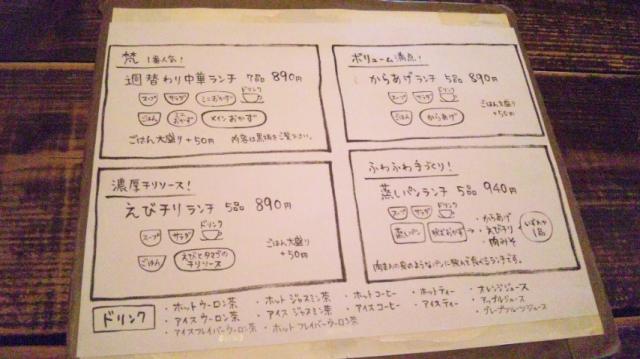 梵 1番人気!
週替わり中華ランチ 7品 890円
スープ サラダ ミニおかず ドリンク
ごはん ミニおかず メインおかず
ごはん大盛り+50円 内容は黒板をご覧下さい。
ボリューム満点!
からあげランチ 5品 890円
スープ サラダ ドリンク
ごはん からあげ
ごはん大盛り
+50円
濃厚チリソース!
えびチリランチ 5品 890円
スープ サラダ ドリンク
ごはん えびとタマゴのチリソース
ごはん大盛り
+50円
ふわふわ手づくり!
蒸しパンランチ 5品 940円
スープ サラダ ドリンク
蒸しパン
・からあげ
・えびチリ
・肉みそ
いずれか
1品
肉まんの皮のようなパンに挟んで食べるランチです。
ドリンク
・ホットウーロン茶 ・ホットジャスミン茶 ・ホットコーヒー ・ホットティー ・オレンジジュース
・アイスウーロン茶 ・アイスジャスミン茶 ・アイスコーヒー ・アイスティー ・アップルジュース
・アイスフレイバーウーロン茶 ・ホットフレイバーウーロン茶 ・グレープフルーツジュース